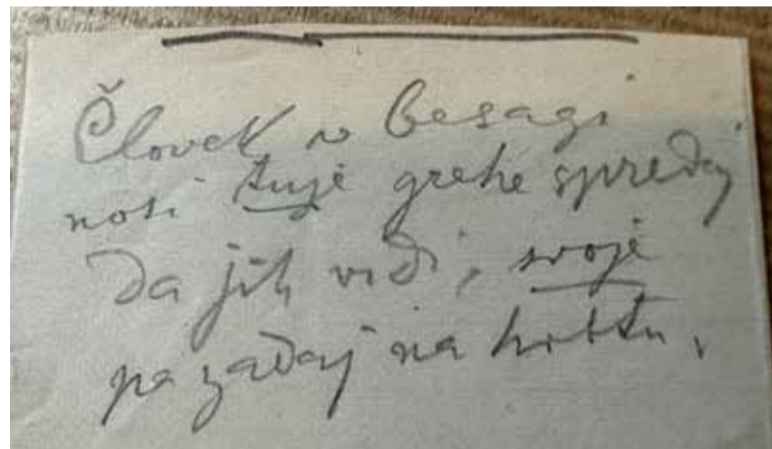 Človek v besagi
nosi tuje grehe spredaj
da jih vidi, svoje
pa zadaj na hrbtu,